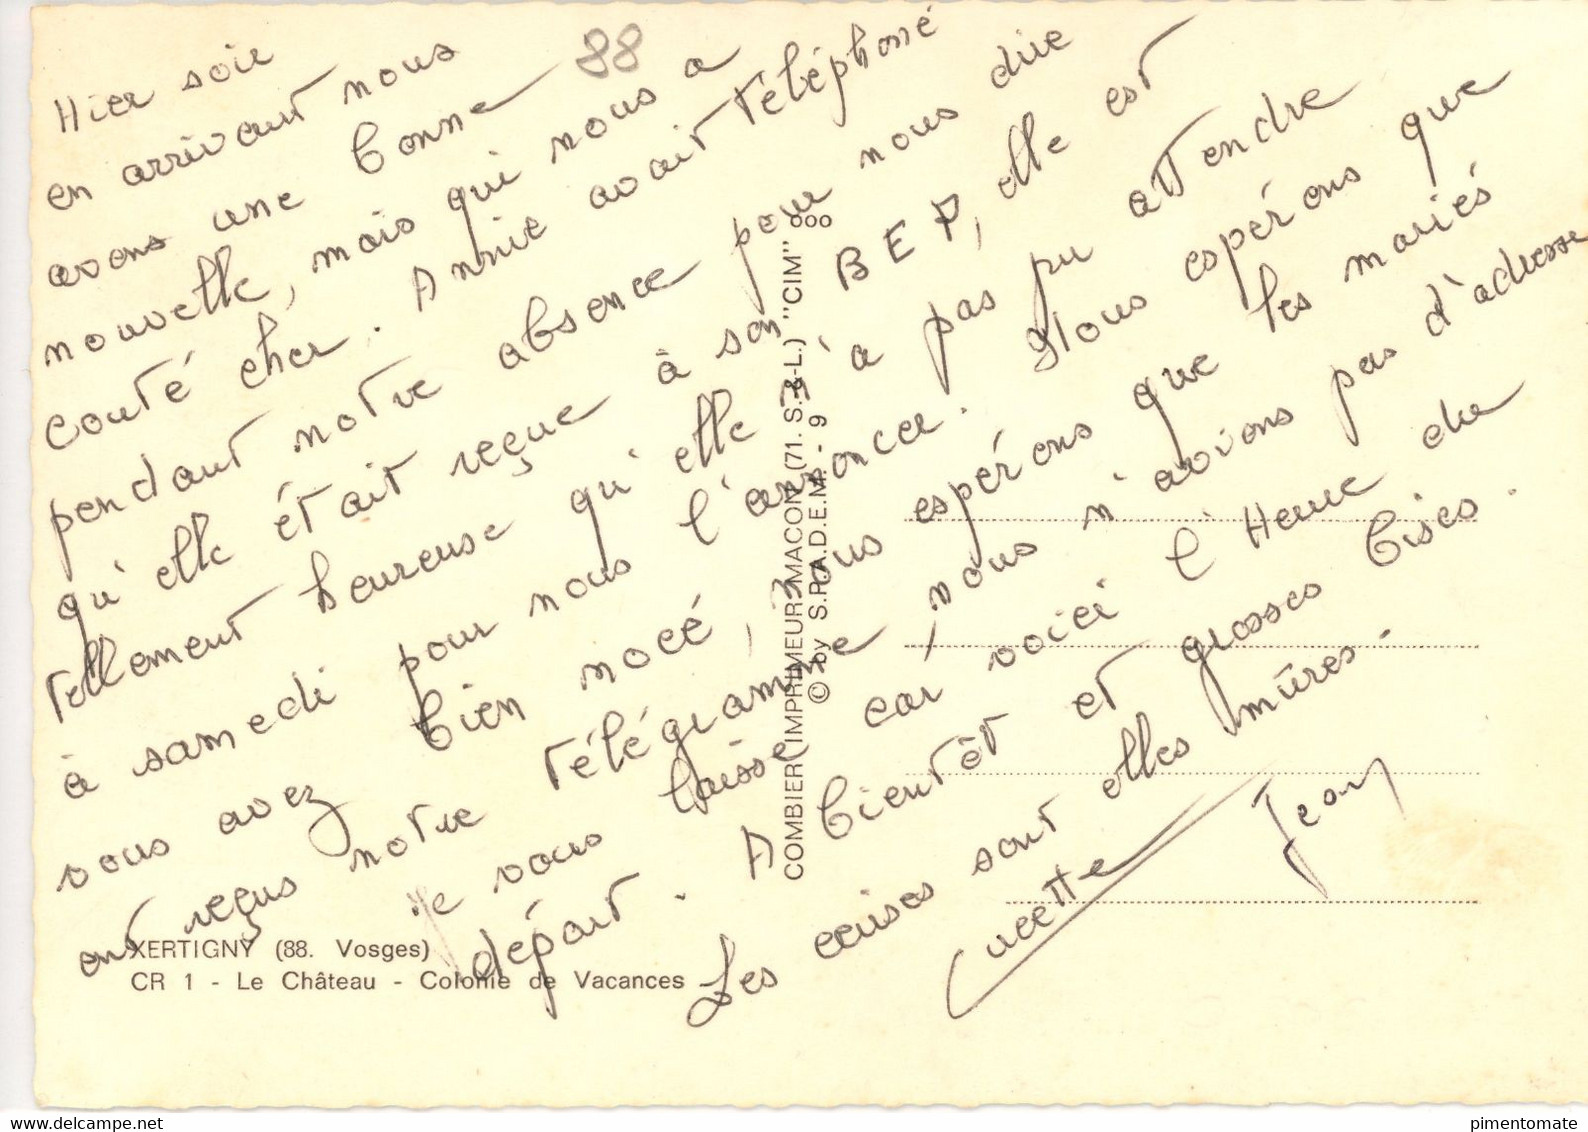 88
Hier soir
en arrivant nous
avons une bonne
nouvelle, mais qui nous a
couté cher. Annie avait téléphoné
pendant notre absence pour nous dire
qu'elle était reçue à son BEP, elle est
tellement heureuse qu'elle n'a pas pu attendre
à samedi pour nous l'annoncer. Nous espérons que
vous avez bien nocé, nous espérons que les mariés
ont reçus notre télégramme, nous n'avions pas d'adresse
Je vous laisse car voici l'Heure du
départ. A bientôt et grosses bises.
Les cerises sont elles mûres.
Lucette Jean
COMBIER IMPRIMEUR MACON (71. S.-&-L.) "CIM"
© by S.P.A.D.E.M. - 9
XERTIGNY (88. Vosges)
CR 1 - Le Château - Colonie de Vacances
www.delcampe.net
pimentomate